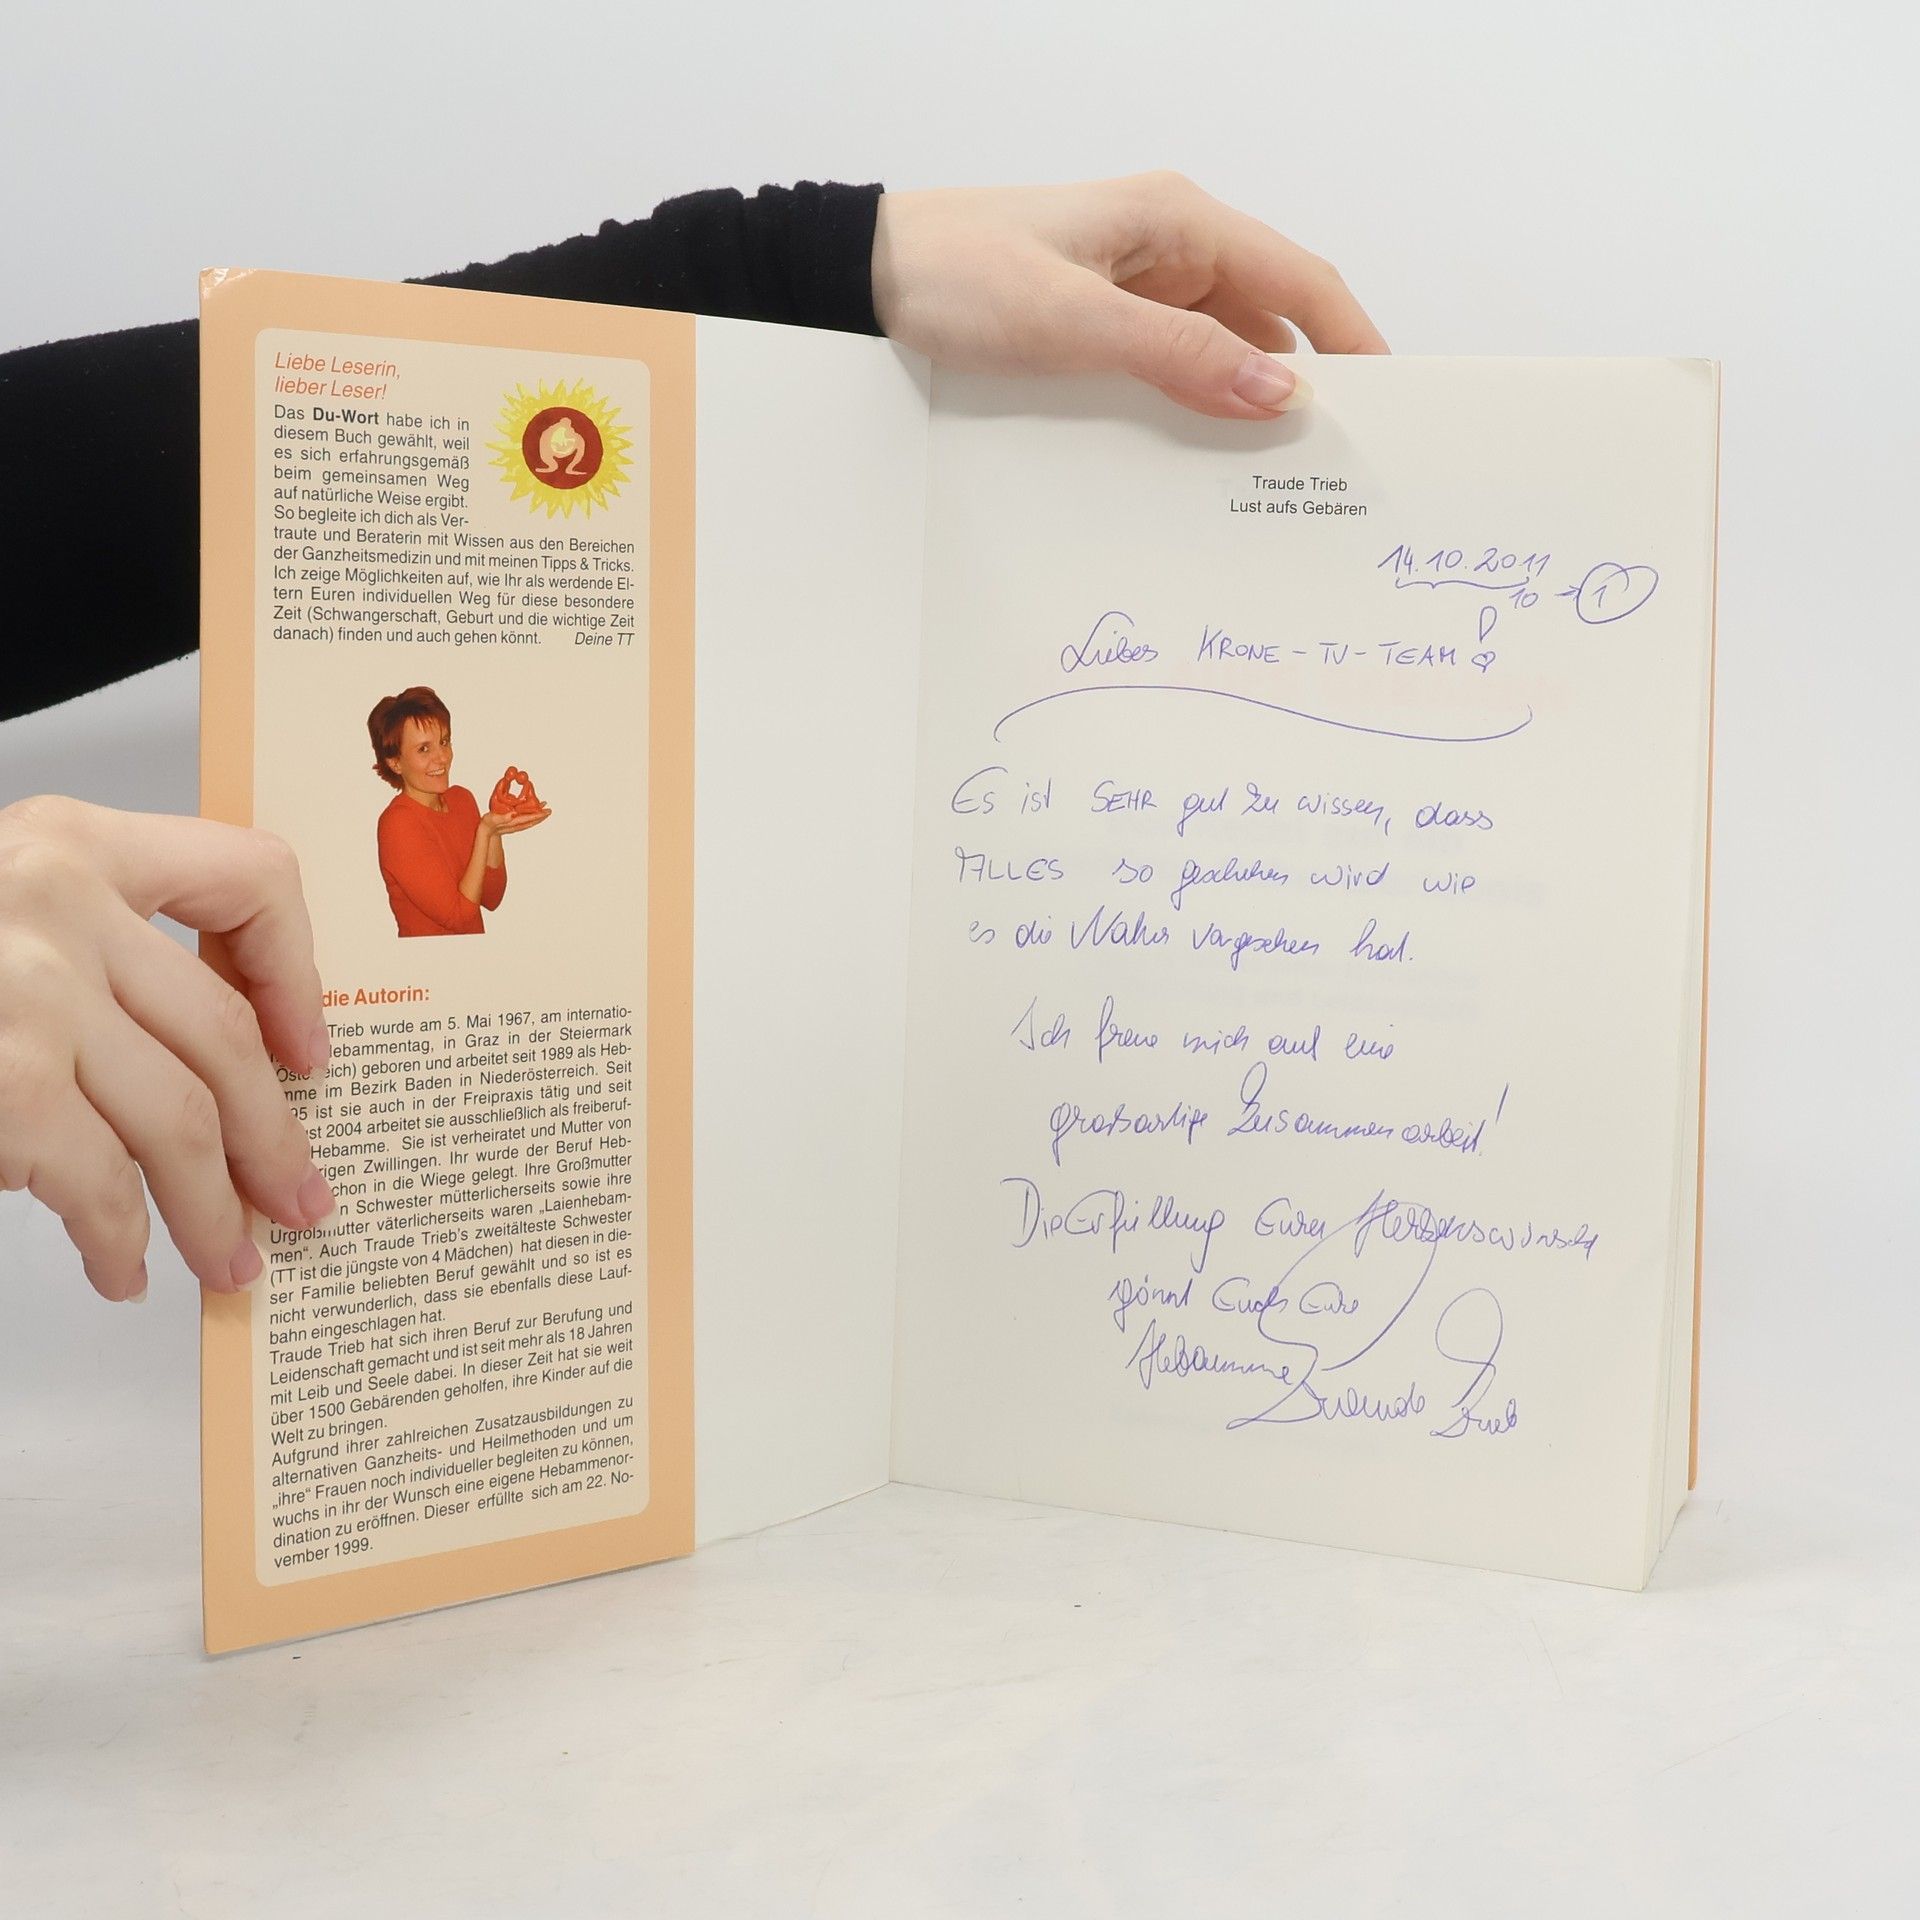 Liebe Leserin,
lieber Leser!
Das Du-Wort habe ich in
diesem Buch gewählt, weil
es sich erfahrungsgemäß
beim gemeinsamen Weg
auf natürliche Weise ergibt.
So begleite ich dich als Ver-
traute und Beraterin mit Wissen aus den Bereichen
der Ganzheitsmedizin und mit meinen Tipps & Tricks.
Ich zeige Möglichkeiten auf, wie Ihr als werdende El-
tern Euren individuellen Weg für diese besondere
Zeit (Schwangerschaft, Geburt und die wichtige Zeit
danach) finden und auch gehen könnt. Deine TT
die Autorin:
Trieb wurde am 5. Mai 1967, am internatio-
lebammentag, in Graz in der Steiermark
eich) geboren und arbeitet seit 1989 als Heb-
mme im Bezirk Baden in Niederösterreich. Seit
95 ist sie auch in der Freipraxis tätig und seit
ust 2004 arbeitet sie ausschließlich als freiberuf-
Hebamme. Sie ist verheiratet und Mutter von
rigen Zwillingen. Ihr wurde der Beruf Heb-
chon in die Wiege gelegt. Ihre Großmutter
n Schwester mütterlicherseits sowie ihre
Urgroßmutter väterlicherseits waren „Laienhebam-
men“. Auch Traude Trieb's zweitälteste Schwester
(TT ist die jüngste von 4 Mädchen) hat diesen in die-
ser Familie beliebten Beruf gewählt und so ist es
nicht verwunderlich, dass sie ebenfalls diese Lauf-
bahn eingeschlagen hat.
Traude Trieb hat sich ihren Beruf zur Berufung und
Leidenschaft gemacht und ist seit mehr als 18 Jahren
mit Leib und Seele dabei. In dieser Zeit hat sie weit
über 1500 Gebärenden geholfen, ihre Kinder auf die
Welt zu bringen.
Aufgrund ihrer zahlreichen Zusatzausbildungen zu
alternativen Ganzheits- und Heilmethoden und um
„ihre“ Frauen noch individueller begleiten zu können,
wuchs in ihr der Wunsch eine eigene Hebammenor-
dination zu eröffnen. Dieser erfüllte sich am 22. No-
vember 1999.
Traude Trieb
Lust aufs Gebären
14.10.2011
10 → 1
Liebes KRONE-TV-TEAM!
Es ist SEHR gut zu wissen, dass
ALLES so geschehen wird wie
es die Natur vorgesehen hat.
Ich freue mich auf eine
großartige Zusammenarbeit!
Die Erfüllung Eurer Herzenswünsche
gönnt Euch Eure
Hebamme Traude Trieb